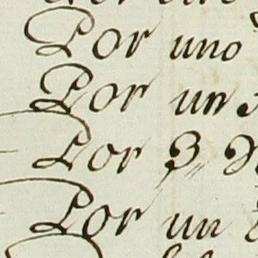 Por uno
Por un
Por 3
Por un